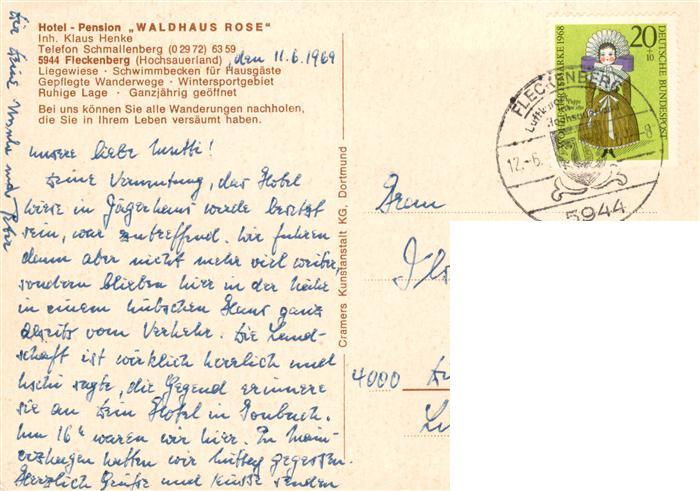 Hotel - Pension „WALDHAUS ROSE"
Inh. Klaus Henke
Telefon Schmallenberg (0 29 72) 63 59
5944 Fleckenberg (Hochsauerland), den 11.6.1969
Liegewiese · Schwimmbecken für Hausgäste
Gepflegte Wanderwege · Wintersportgebiet
Ruhige Lage · Ganzjährig geöffnet
Bei uns können Sie alle Wanderungen nachholen,
die Sie in Ihrem Leben versäumt haben.
Unsere liebe Mutti!
Deine Vermutung, das Hotel
Wiese in Jägerhaus werde besetzt
sein, war zutreffend. Wir fuhren
dann aber nicht mehr viel weiter,
sondern blieben hier in der Nähe
in einem hübschen Haus ganz
abseits vom Verkehr. Die Land-
schaft ist wirklich herrlich und
Uschi sagte, die Gegend erinnere
sie an Dein Hotel in Tonbach.
Um 16 h waren wir hier. In Mein-
erzhagen hatten wir Mittag gegessen.
Herzlich Grüße und Küsse senden
Dir Deine Ursula und Peter
Cramers Kunstanstalt KG, Dortmund
WOHLFAHRTSMARKE 1968
20
+10
DEUTSCHE BUNDESPOST
FLECKENBERG
12.-6.
-8
5944
4000